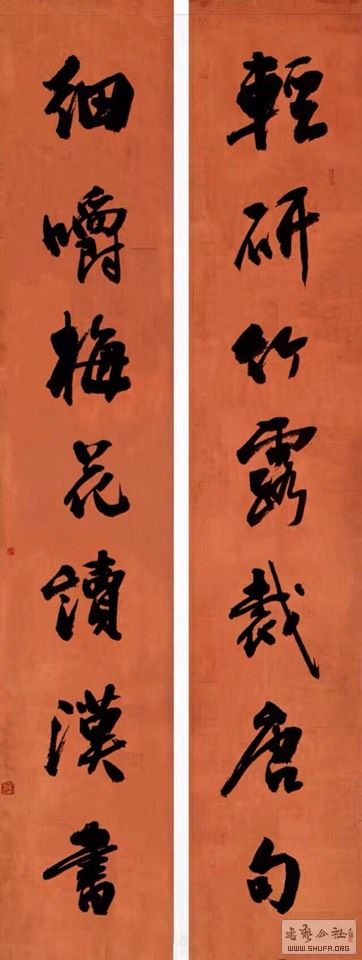 輕研竹露裁唐句
細嚼梅花讀漢書
WWW.SHUFA.ORG